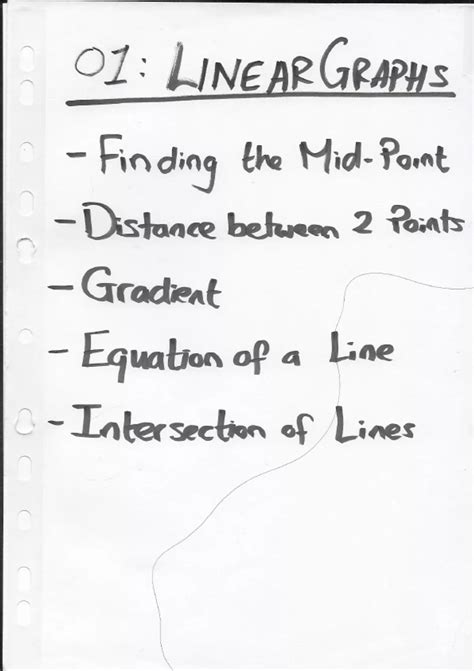 01: LINEAR GRAPHS
- Finding the Mid-Point
- Distance between 2 Points
- Gradient
- Equation of a Line
- Intersection of Lines